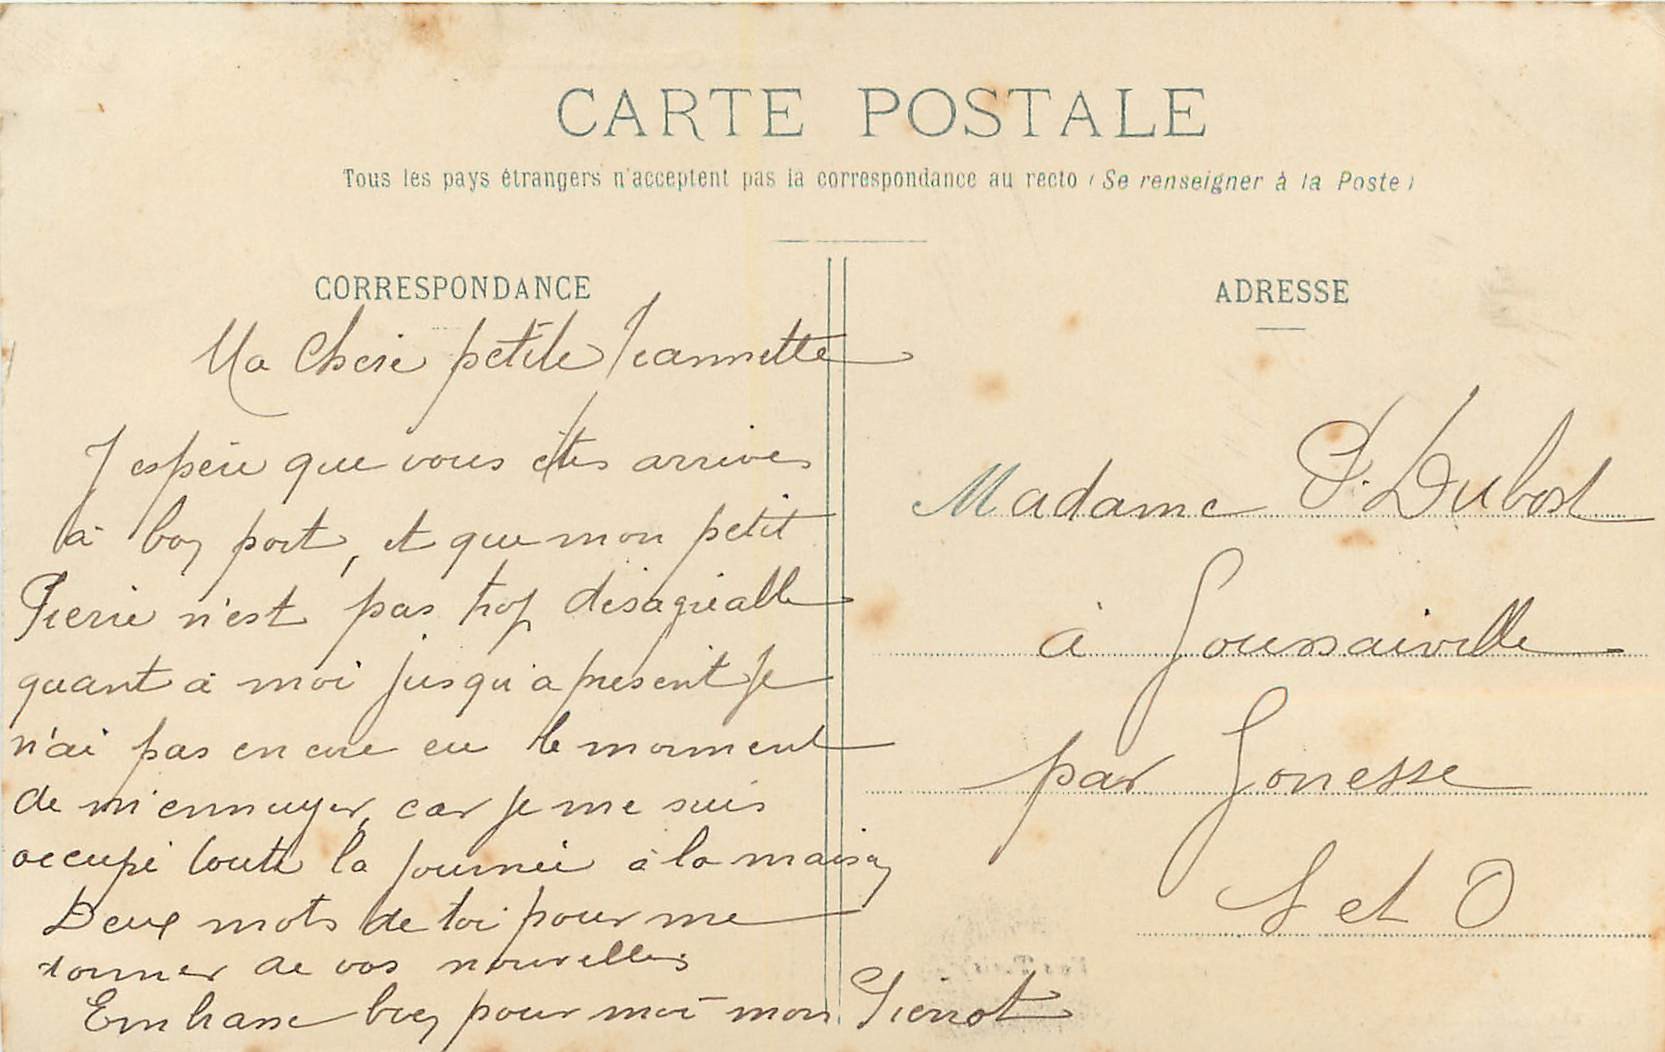 CARTE POSTALE
Tous les pays étrangers n'acceptent pas la correspondance au recto (Se renseigner à la Poste)
CORRESPONDANCE
Ma Chere petite Jeannette
J'espère que vous êtes arrivés
à bon port, et que mon petit
Pierre n'est pas trop désagréable
quant à moi jusqu'a présent je
n'ai pas encore eu le moment
de m'ennuyer, car je me suis
occupé toute la journée à la maison
Deux mots de toi pour me
donner de vos nouvelles
Embrasse bien pour moi mon Pierrot
ADRESSE
Madame P. Dubost
à Goussainville
par Gonesse
S et O